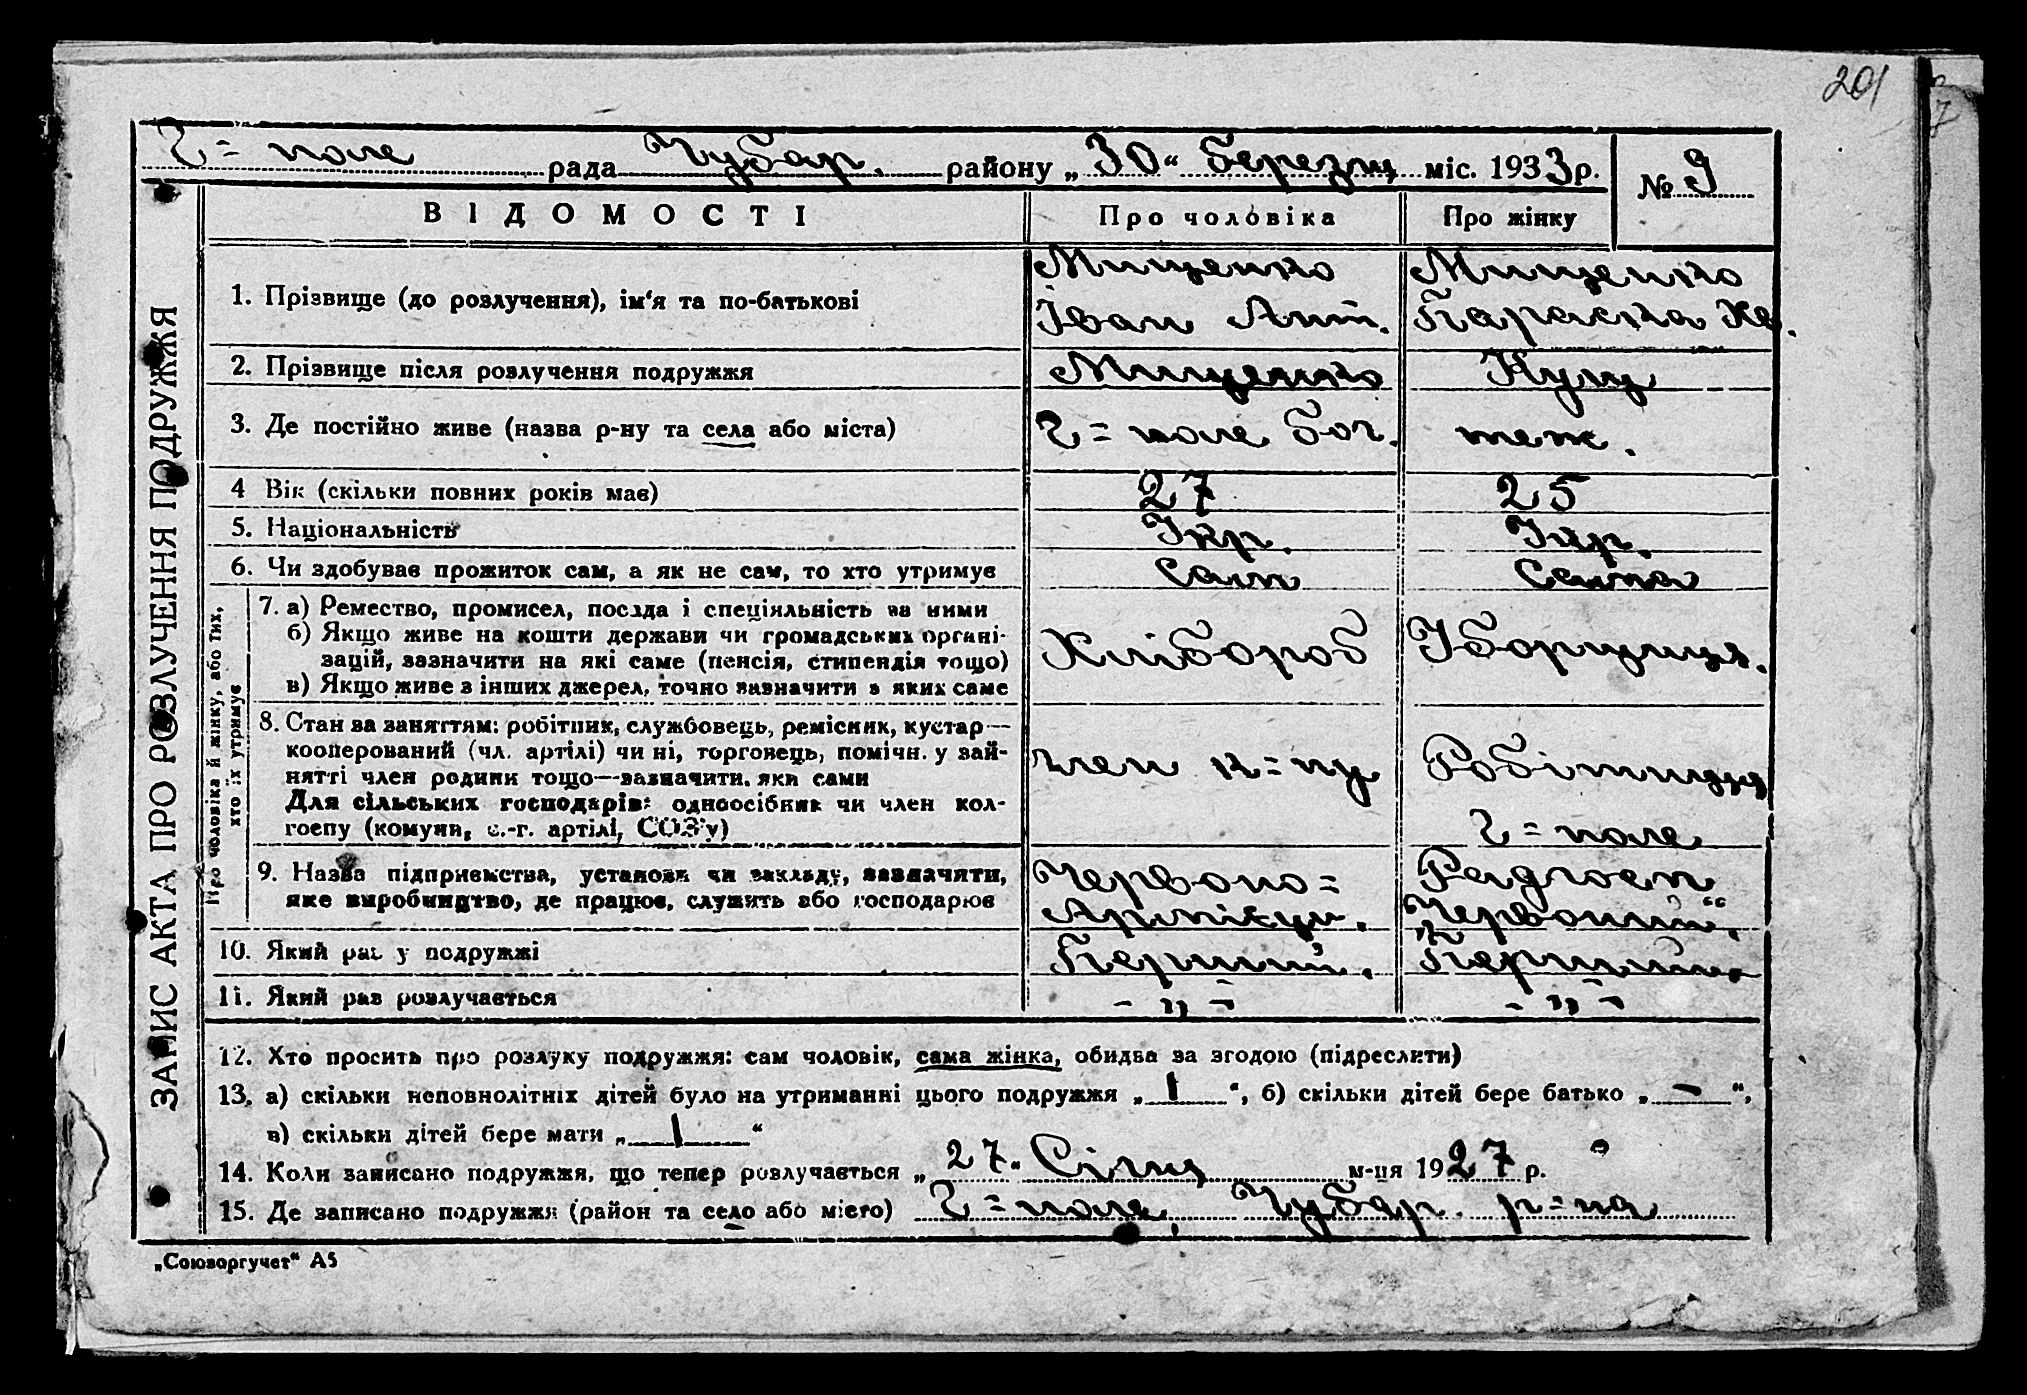 201
Г=поле рада Чубар. району „30“ березня міс. 1933 р. № 9
ВІДОМОСТІ Про чоловіка Про жінку
ЗАПИС АКТА ПРО РОЗЛУЧЕННЯ ПОДРУЖЖЯ
1. Прізвище (до розлучення), ім'я та по-батькові
Мищенко Мищенко
Іван Ант. Параска
2. Прізвище після розлучення подружжя Мищенко Куц
3. Де постійно живе (назва р-ну та села або міста) Г=поле теж.
4 Вік (скільки повних років має) 27 25
5. Національність Укр. Укр.
6. Чи здобував прожиток сам, а як не сам, то хто утримує Сам Сама
Про чоловіка й жінку, або тих, хто їх утримує
7. а) Ремество, промисел, посада і спеціяльність за ними
б) Якщо живе на кошти держави чи громадських органі-
зацій, зазначити на які саме (пенсія, стипендія тощо)
в) Якщо живе з інших джерел, точно зазначити з яких саме
Хлібороб Уборщиця.
8. Стан за заняттям: робітник, службовець, ремісник, кустар—
кооперований (чл. артілі) чи ні, торговець, помічн. у зай-
нятті член родини тощо—зазначити, яки сами
Для сільських господарів: одноосібник чи член кол-
госпу (комуни, с.-г. артілі, СОЗ'у)
член к=пу Робітниця
Г=поле
9. Назва підприємства, установи чи закладу, зазначити,
яке виробництво, де працює, служить або господарює
Червоно= Радгосп
Армієць. „Червоний“.
10. Який раз у подружжі Перший. Перший.
11. Який раз розлучається - „ - - „ -
12. Хто просить про розлуку подружжя: сам чоловік, сама жінка, обидва за згодою (підреслити)
13. а) скільки неповнолітніх дітей було на утриманні цього подружжя „1“, б) скільки дітей бере батько „-“,
в) скільки дітей бере мати „1“
14. Коли записано подружжя, що тепер розлучається „27“ Січня м-ця 1927 р.
15. Де записано подружжя (район та село або місто) Г=поле, Чубар. р=на
„Союзоргучет“ А5